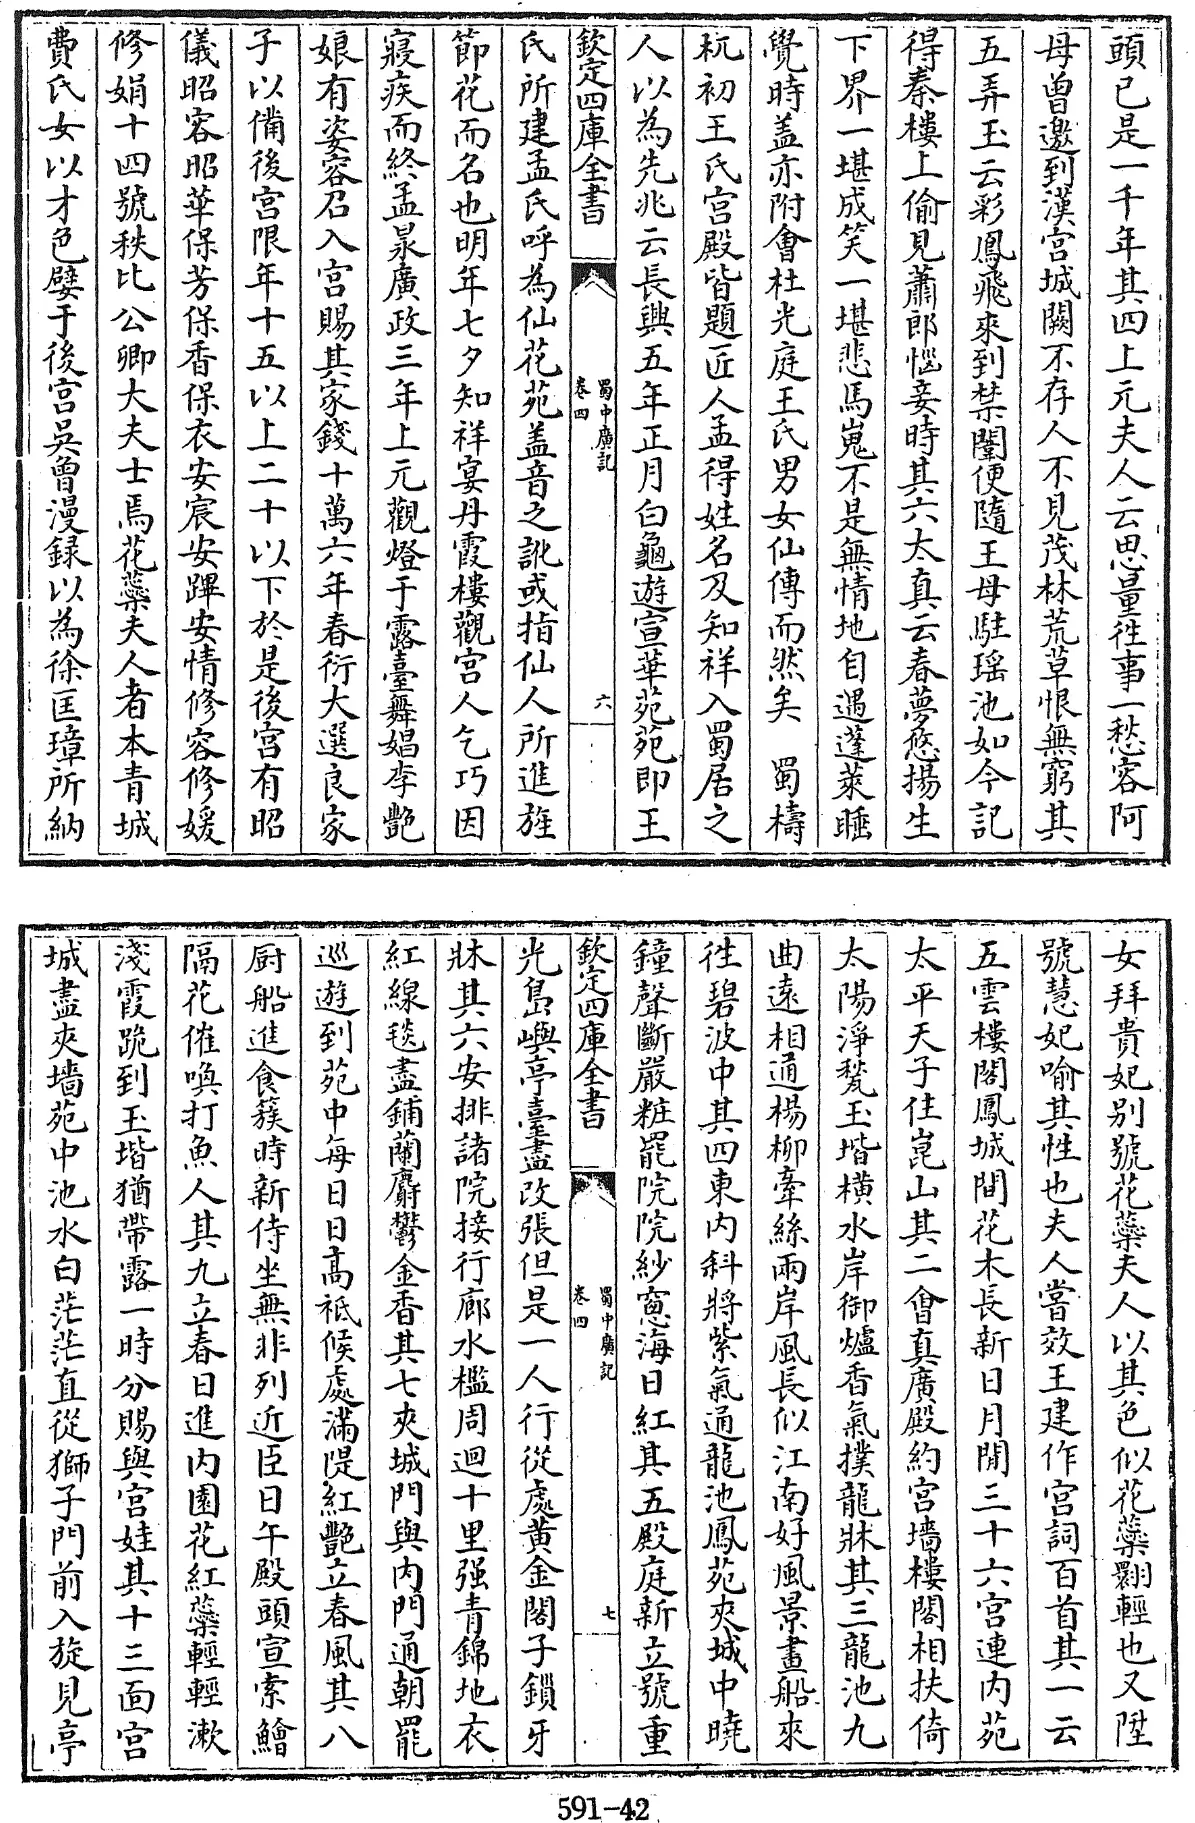 頭已是一千年其四上元夫人云思量徃事一愁容阿
母曾邀到漢宫城闕不存人不見茂林荒草恨無窮其
五弄玉云彩鳳飛來到禁闈便隨王母駐瑶池如今記
得秦樓上偷見蕭郎惱妾時其六太真云春夢悠揚生
下界一堪成笑一堪悲馬嵬不是無情地自遇蓬萊睡
覺時盖亦附會杜光庭王氏男女仙傳而然矣　蜀檮
杌初王氏宫殿皆題匠人孟得姓名及知祥入蜀居之
人以為先兆云長興五年正月白龜遊宣華苑苑即王
欽定四庫全書
蜀中廣記
卷四
六
氏所建孟氏呼為仙花苑盖音之訛或指仙人所進旌
節花而名也明年七夕知祥宴丹霞樓觀宫人乞巧因
寢疾而終孟㫤廣政三年上元觀燈于露臺舞娼李艶
娘有姿容召入宫賜其家錢十萬六年春衍大選良家
子以備後宫限年十五以上二十以下於是後宫有昭
儀昭容昭華保芳保香保衣安宸安蹕安情修容修媛
修娟十四號秩比公卿大夫士焉花蘂夫人者本青城
費氏女以才色嬖于後宫吳曾漫録以為徐匡璋所納
女拜貴妃别號花蘂夫人以其色似花蘂翾輕也又陞
號慧妃喻其性也夫人嘗效王建作宫詞百首其一云
五雲樓閣鳳城間花木長新日月閒三十六宫連内苑
太平天子住崑山其二會真廣殿約宫墻樓閣相扶倚
太陽淨甃玉堦横水岸御爐香氣撲龍牀其三龍池九
曲遠相通楊柳牽絲兩岸風長似江南好風景畫船來
徃碧波中其四東内斜將紫氣通龍池鳳苑夾城中曉
鐘聲斷嚴粧罷院院紗窻海日紅其五殿庭新立號重
欽定四庫全書
蜀中廣記
卷四
七
光島嶼亭臺盡改張但是一人行從處黄金閣子鎖牙
牀其六安排諸院接行廊水檻周迴十里强青錦地衣
紅線毯盡鋪蘭麝鬱金香其七夾城門與内門通朝罷
巡遊到苑中每日日高祗候處滿隄紅艶立春風其八
厨船進食簇時新侍坐無非列近臣日午殿頭宣索鱠
隔花催喚打魚人其九立春日進内園花紅蘂輕輕漱
淺霞跪到玉堦猶帶露一時分賜與宫娃其十三面宫
城盡夾墻苑中池水白茫茫直從獅子門前入旋見亭
591-42